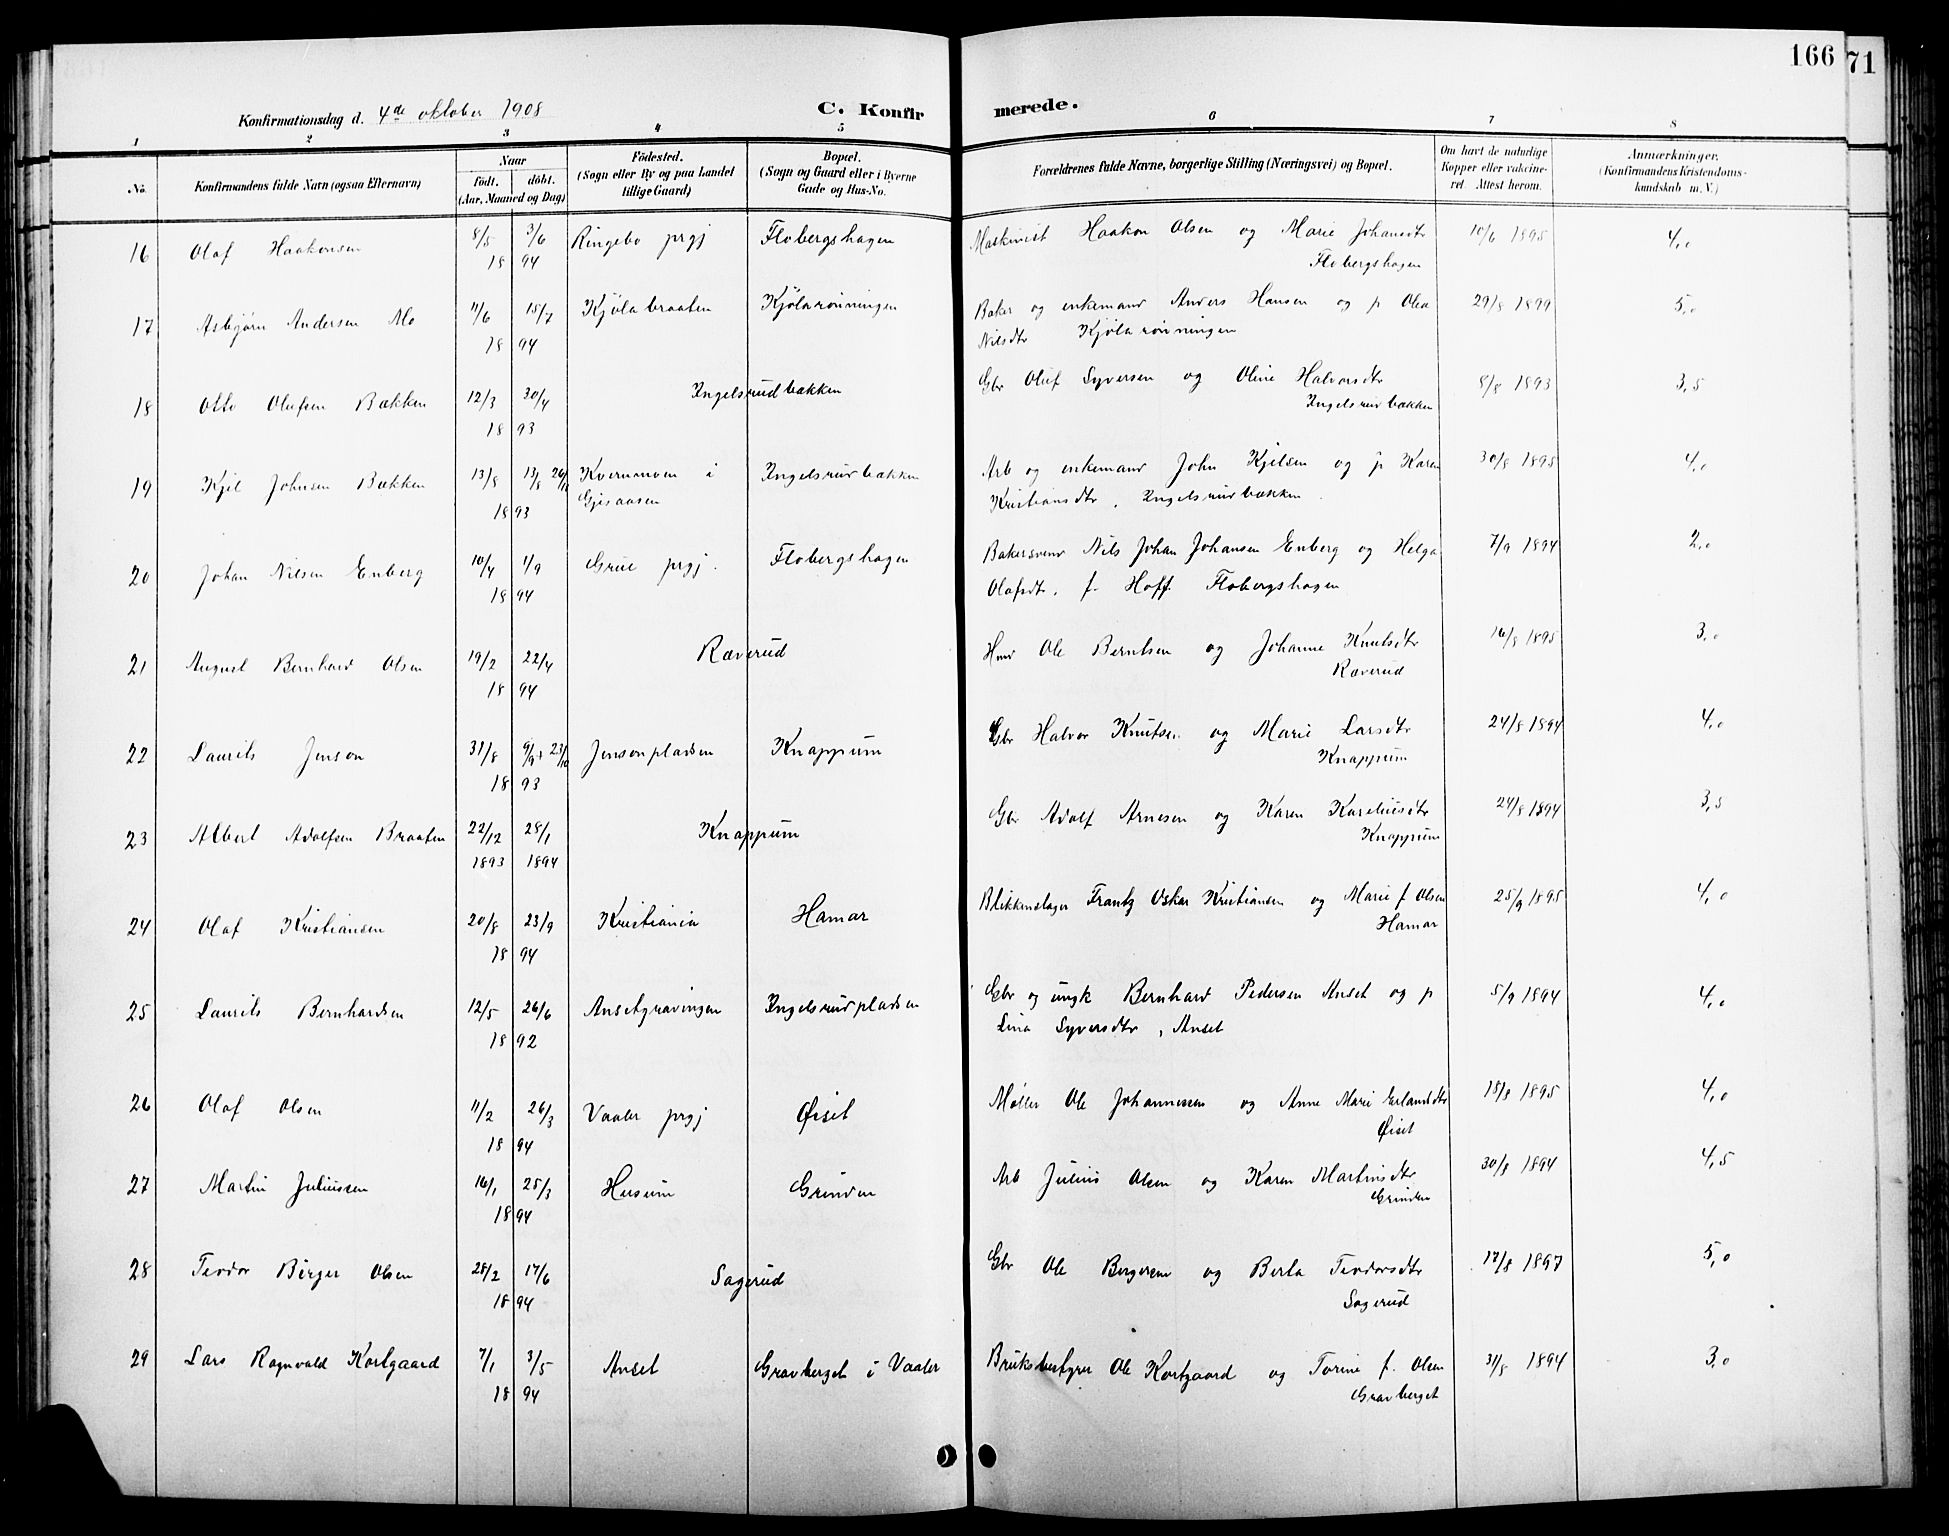 166
71
Konfirmationsdag d. 4de oktober 1908
C. Konfir
merede.
1 2 3 4 5 6 7 8
No. Konfirmandens fulde Navn (ogsaa Efternavn) Naar født. døbt. (Aar, Maaned og Dag) Fødested. (Sogn eller By og paa Landet tillige Gaard) Bopæl. (Sogn og Gaard eller i Byerne Gade og Hus-No. Forældrenes fulde Navne, borgerlige Stilling (Næringsvei) og Bopæl. Om havt de naturlige Kopper eller vakcineret. Attest herom. Anmærkninger. (Konfirmandens Kristendomskundskab m. V.)
16 Olaf Haakonsen 8/5 3/6 Ringebo prgj Flobergshagen Maskinist Haakon Olsen og Marie Johansdtr 10/6 1895 4,0
18 94 Flobergshagen
17 Asbjørn Andersen Mo 11/6 15/7 Kjølabraaten Kjølarønningen Baker og enkemand Anders Hansen og p Olea 29/8 1899 5,0
18 94 Nilsdtr Kjølarønningen
18 Otto Olufsen Bakken 12/3 30/4 Ingelsrudbakken Gbr Oluf Syversen og Oline Halvorsdtr 8/8 1893 3,5
18 93 Ingelsrudbakken
19 Kjel Johnsen Bakken 13/8 13/8 Kvernmoen i Ingelsrudbakken Arb og enkemand John Kjelsen og p Karen 30/8 1895 4,0
18 93 Gjesaasen Kristiansdtr, Ingelsrudbakken.
20 Johan Nilsen Enberg 10/4 1/9 Grue prgj. Flobergshagen Bakersvend Nils Johan Johansen Enberg og Helga 7/9 1894 2,0
18 94 Olafsdtr. f. Hoff. Flobergshagen
21 August Bernhard Olsen 19/2 22/4 Ræverud Hmd Ole Berntsen og Johanne Knutsdtr 16/8 1895 3,0
18 94 Ræverud
22 Laurits Jenson 31/8 9/9 + 23/10 Jensonpladsen Knappum Gbr Halvor Knutsen og Marie Larsdtr 24/8 1894 4,0
18 93 Knappum
23 Albert Adolfsen Braaten 22/12 28/1 Knappum Gbr Adolf Arnesen og Karen Kareliusdtr 24/8 1894 3,5
1893 1894 Knappum
24 Olaf Kristiansen 20/8 23/9 Kristiania Hamar Blikkenslager Frantz Oskar Kristiansen og Marie f Olsen 25/9 1895 4,0
18 94 Hamar
25 Laurits Bernhardsen 12/5 26/6 Ansetgravingen Ingelsrudpladsen Gbr og ungk Bernhard Pedersen Anset og p 5/9 1894 4,0
18 92 Lina Syversdtr, Anset
26 Olaf Olsen 11/2 26/3 Vaaler prgj Øiset Møller Ole Johannessen og Anne Marie Erlandsdtr 15/8 1895 4,0
18 94 Øiset
27 Martin Juliussen 16/1 25/3 Husum Grinden Arb Julius Olsen og Karen Martinsdtr 30/8 1894 4,5
18 94 Grinden
28 Teodor Birger Olsen 28/2 17/6 Sagerud Gbr Ole Bergersen og Berta Teodorsdtr 17/8 1897 5,0
18 94 Sagerud
29 Lars Ragnvald Kortgaard 7/1 3/5 Anset Gravberget i Vaaler Bruksbestyrer Ole Kortgaard og Torine f. Olsen 31/8 1894 3,0
18 94 Gravberget